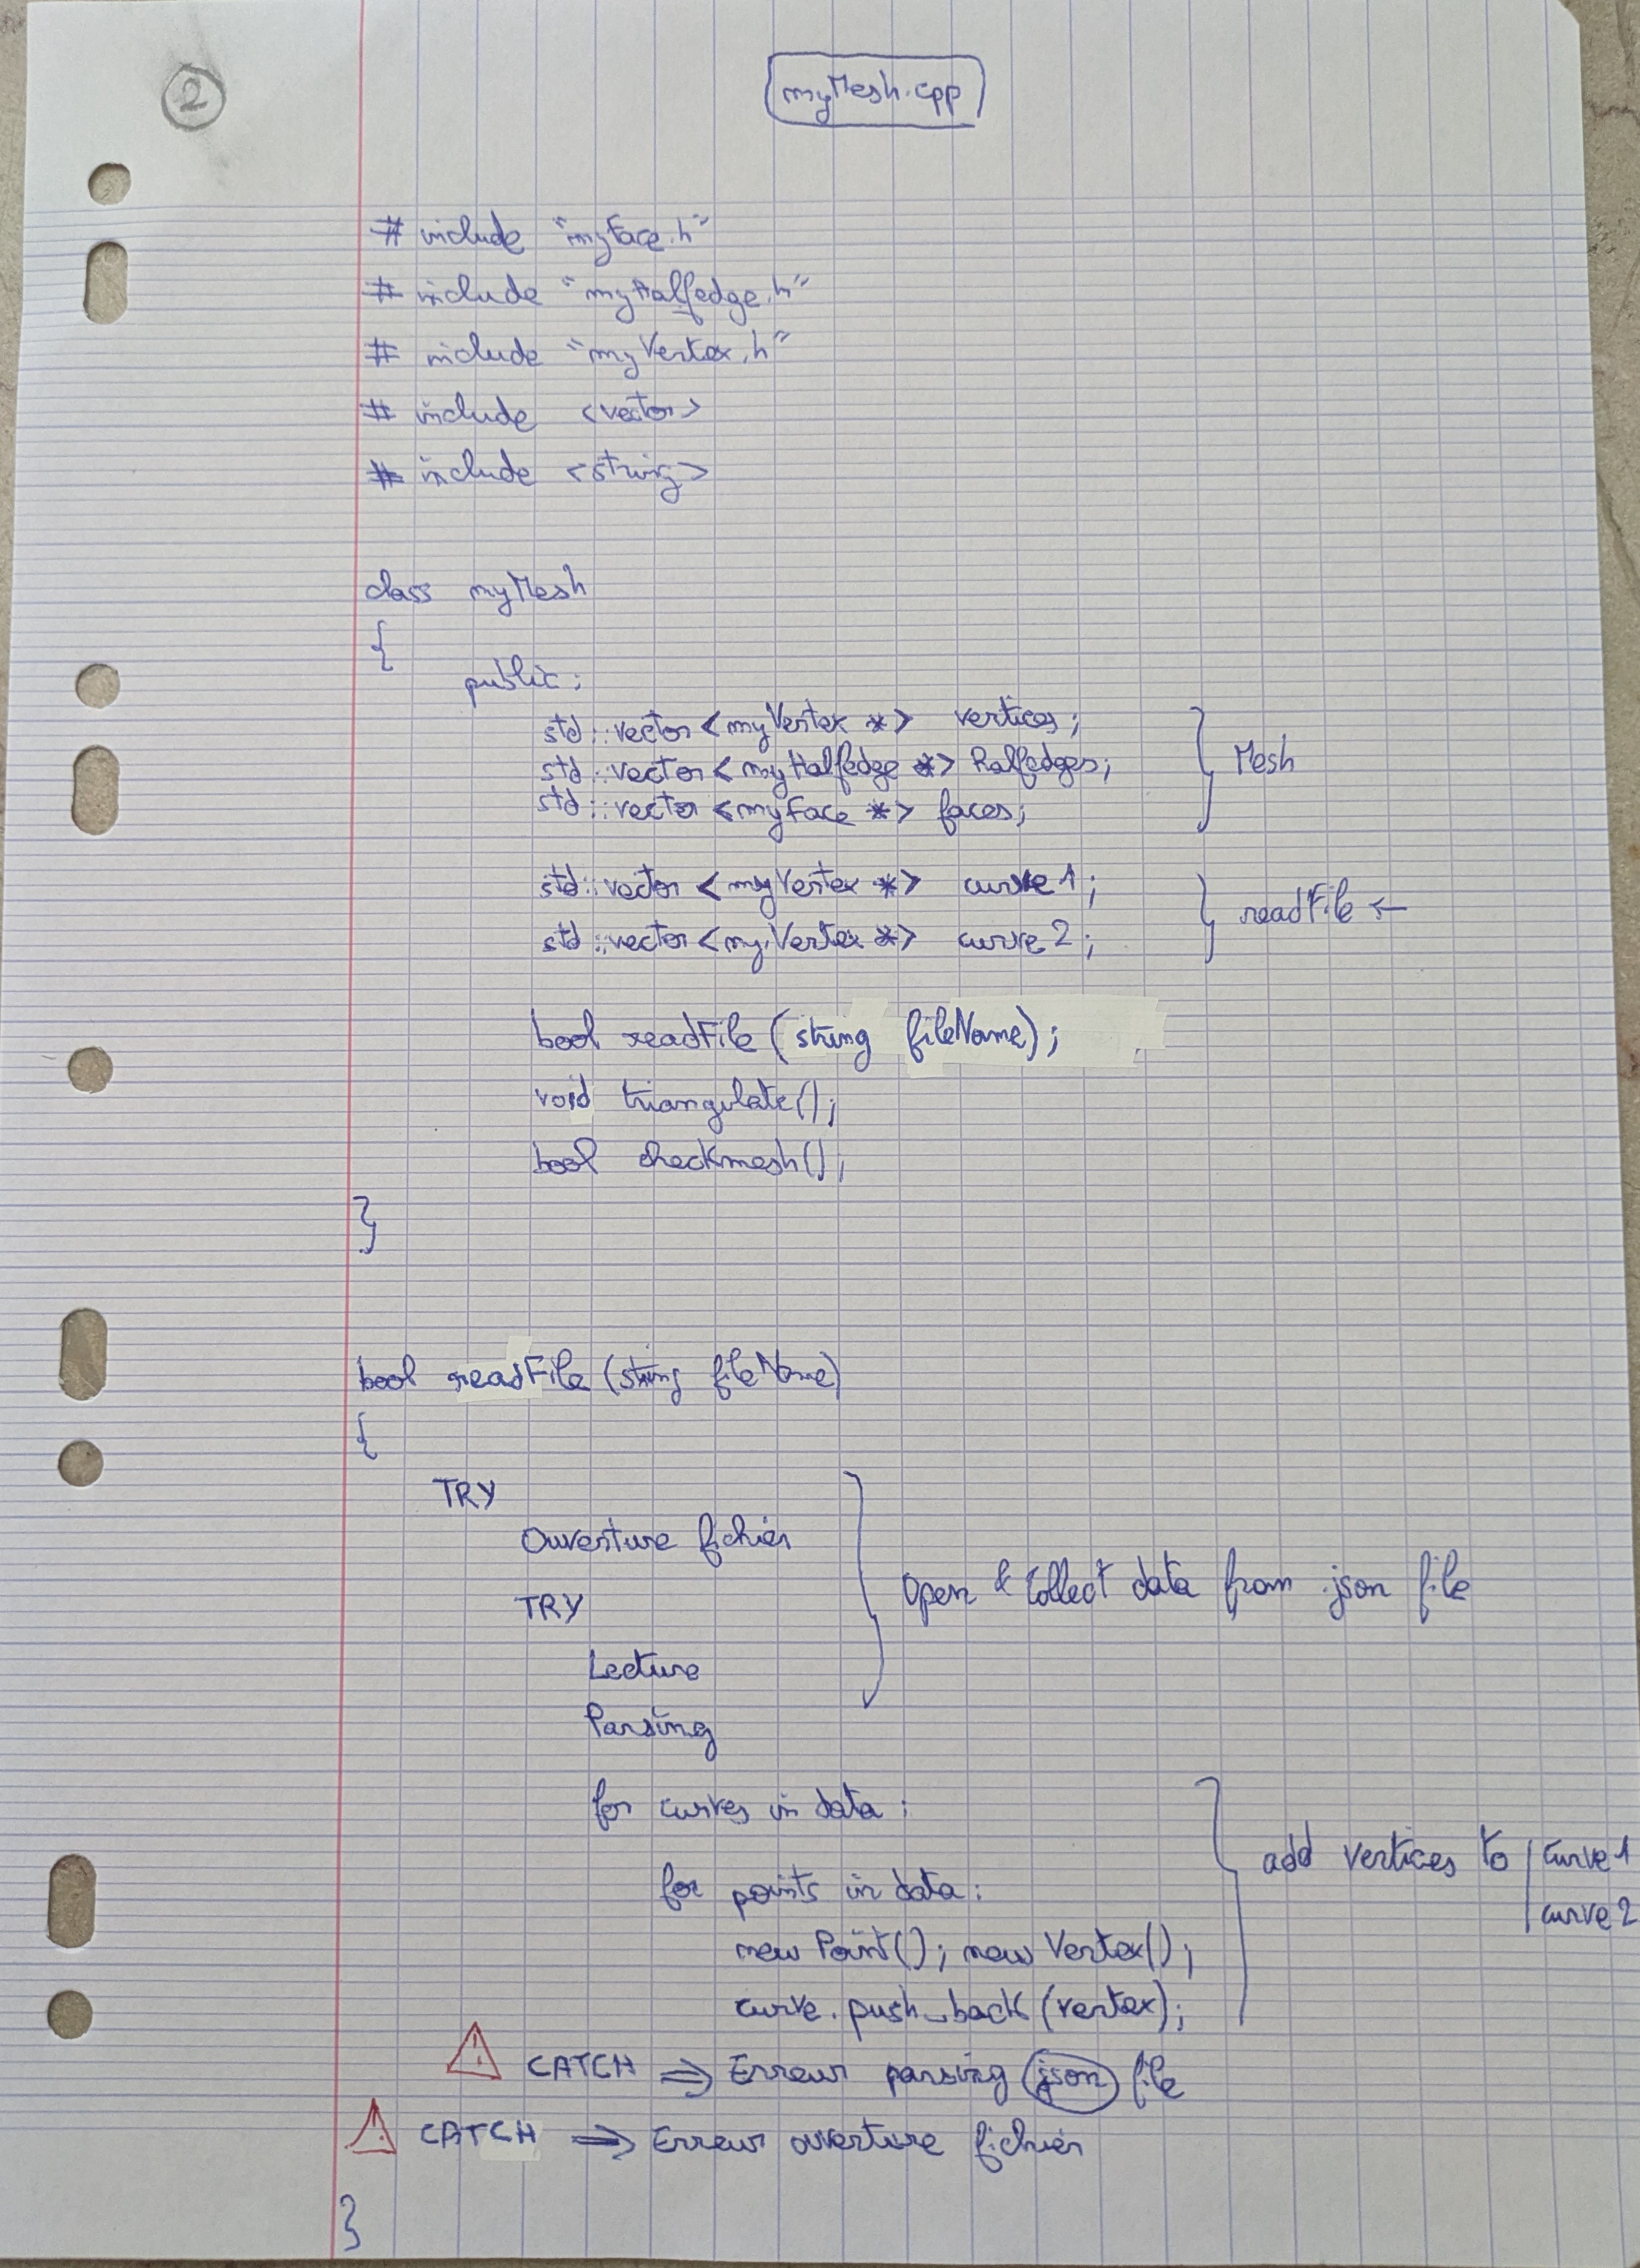 2
myMesh.cpp
# include "myFace.h"
# include "myHalfedge.h"
# include "myVertex.h"
# include <vector>
# include <string>
class myMesh
{
public:
std::vector<myVertex *> vertices;
std::vector<myHalfedge *> halfedges;
std::vector<myFace *> faces;
} Mesh
std::vector<myVertex *> curve1;
std::vector<myVertex *> curve2;
} readFile ←
bool readFile(string fileName);
void triangulate();
bool checkmesh();
}
bool readFile(string fileName)
{
TRY
Ouverture fichier
TRY
Lecture
Parsing
} Open & Collect data from .json file
for curves in data:
for points in data:
new Point(); new Vertex();
curve.push_back(vertex);
} add vertices to | curve1
curve2
⚠ CATCH ⇒ Erreur parsing json file
⚠ CATCH ⇒ Erreur ouverture fichier
}